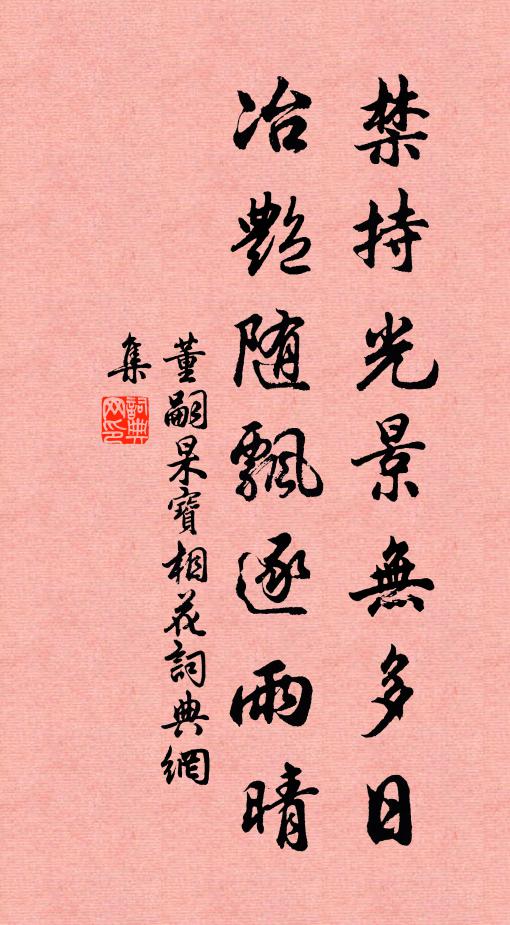 禁持光景無多日
冶艷随飄逐雨晴
董嗣杲寶相花詞典網
集
詞典網印